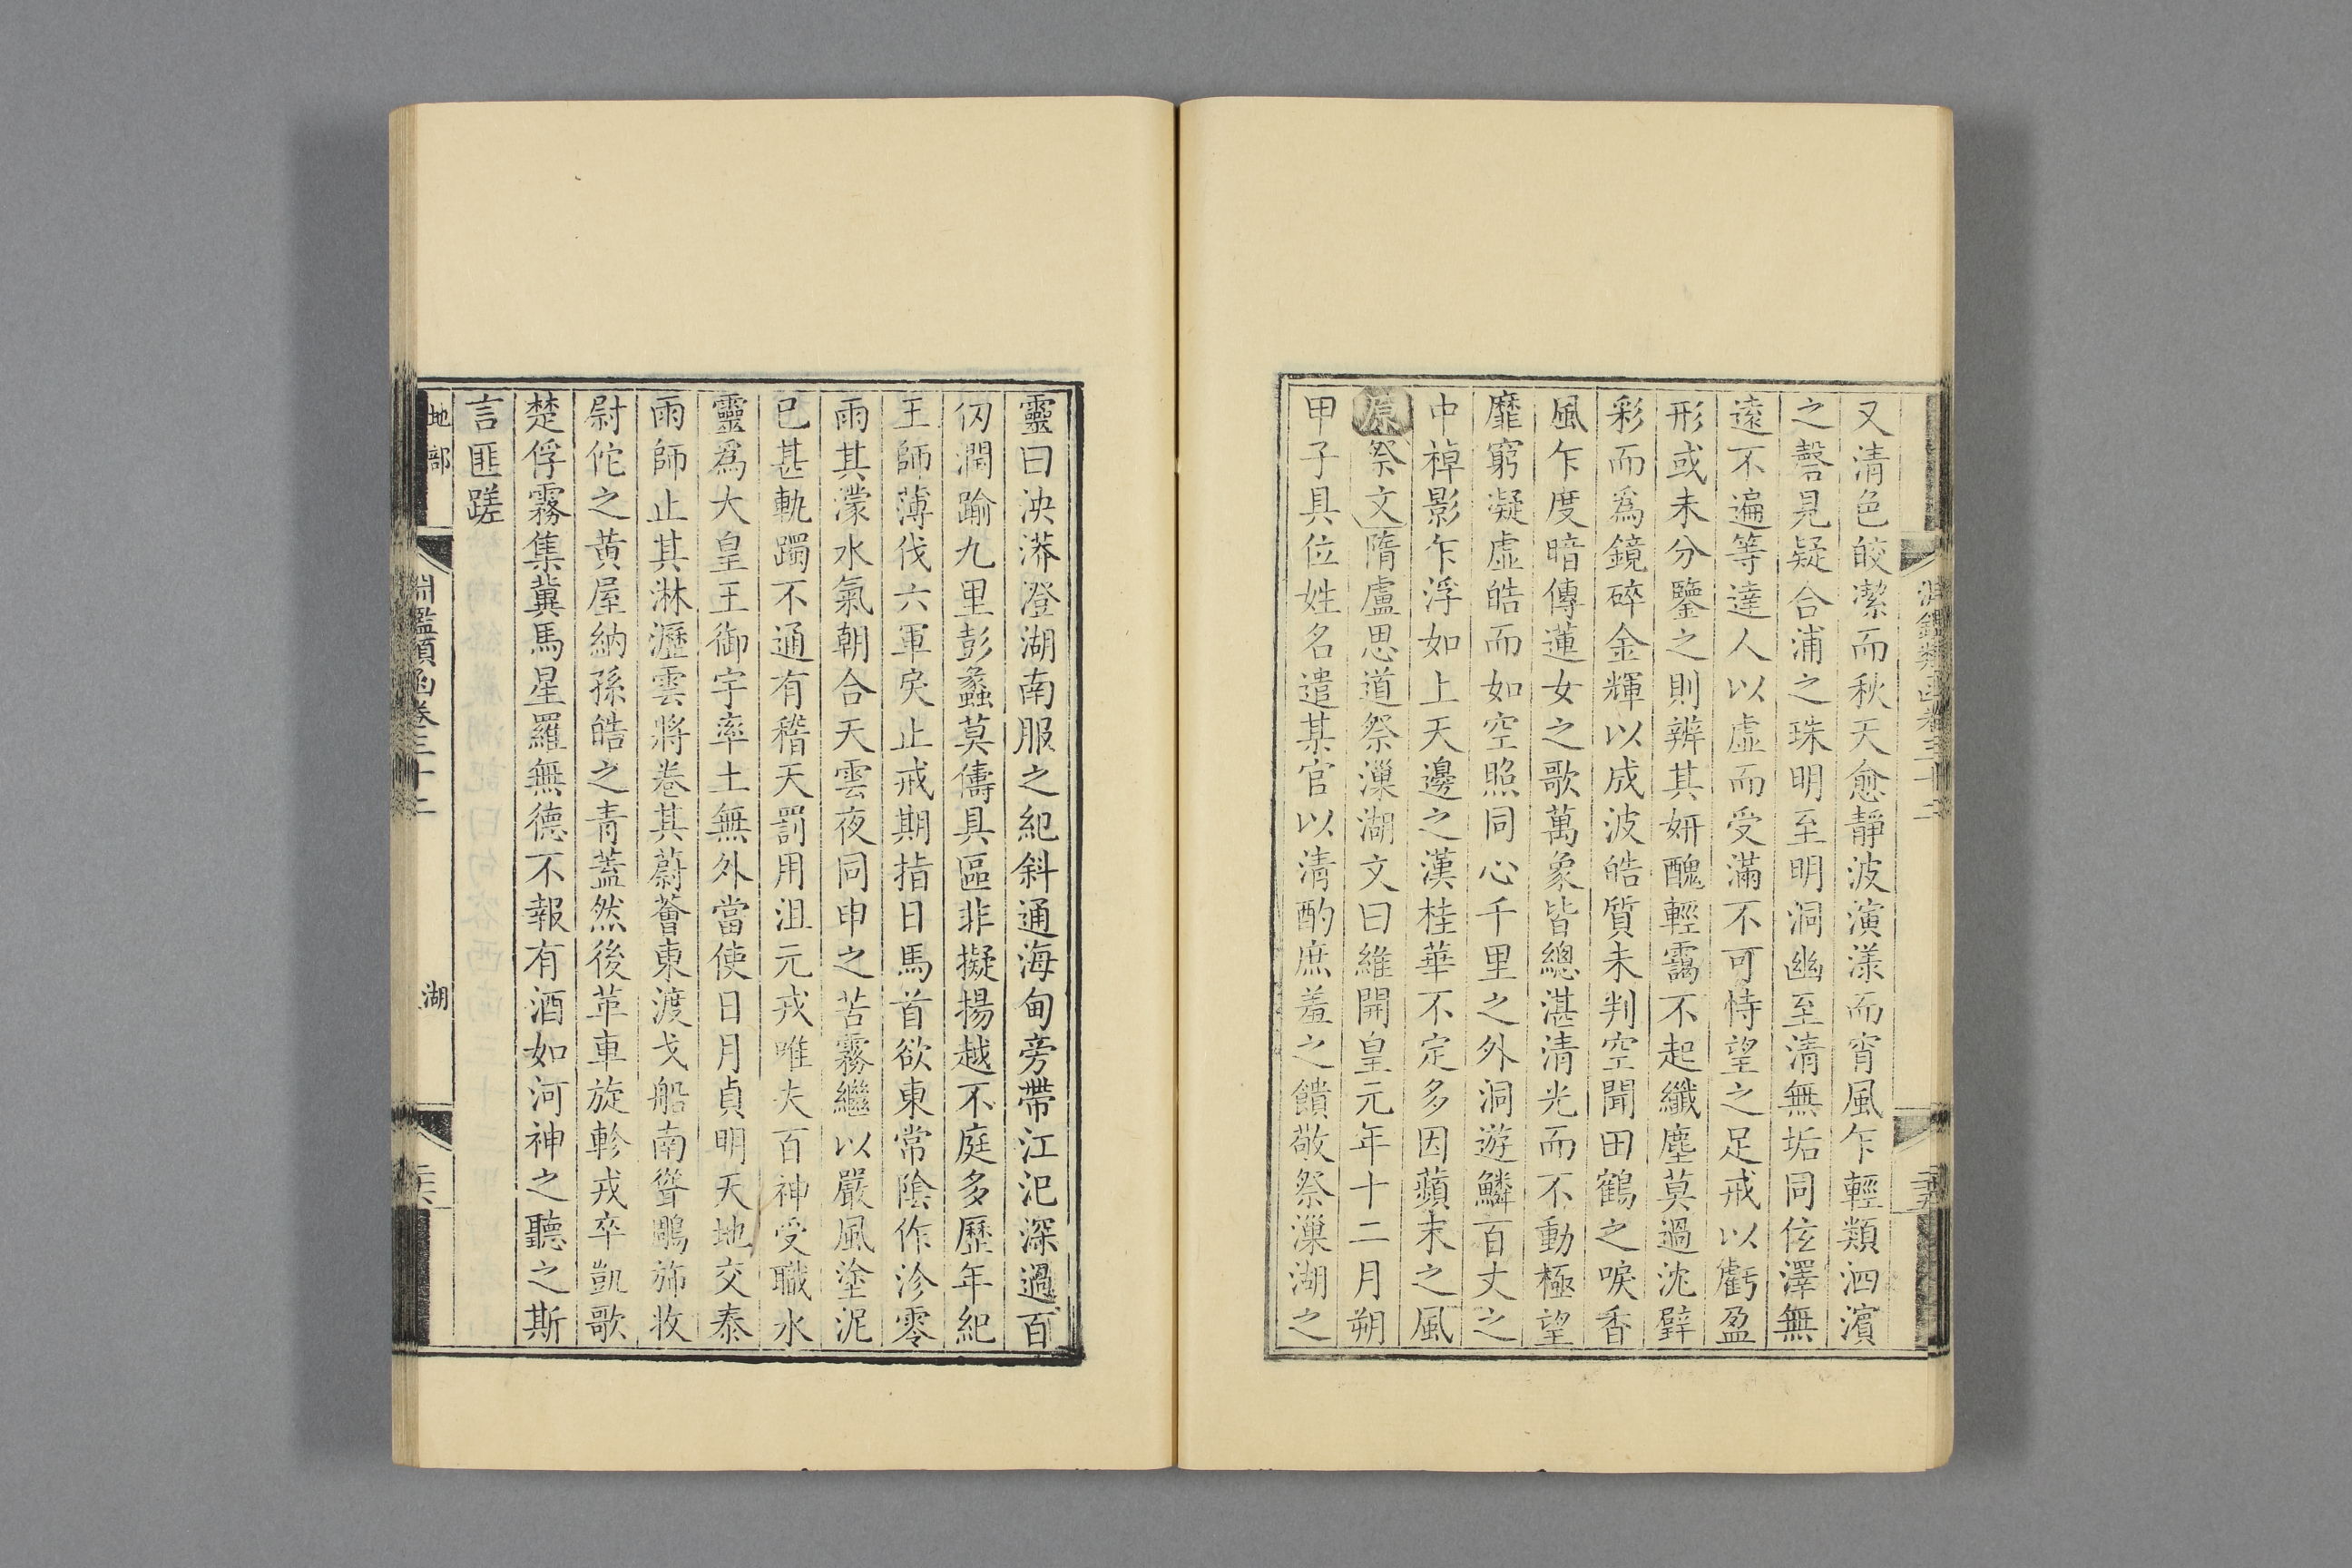 淵鑑類函卷三十二
二十五
又清色皎潔而秋天愈靜波演漾而宵風乍輕類泗濱
之磬見疑合浦之珠明至明洞幽至清無垢同伭澤無
遠不遍等達人以虛而受滿不可恃望之足戒以虧盈
形或未分鑒之則辨其妍醜輕靄不起纖塵莫過沈璧
彩而爲鏡碎金輝以成波皓質未判空聞田鶴之唳香
風乍度暗傳蓮女之歌萬象皆總湛清光而不動極望
靡窮凝虛皓而如空照同心千里之外洞遊鱗百丈之
中棹影乍浮如上天邊之漢桂華不定多因蘋末之風
原祭文隋盧思道祭漅湖文曰維開皇元年十二月朔
甲子具位姓名遣某官以清酌庶羞之饋敬祭漅湖之
靈曰泱漭澄湖南服之紀斜通海甸旁帶江汜深過百
仞潤踰九里彭蠡莫儔具區非擬揚越不庭多歷年紀
王師薄伐六軍戾止戒期指日馬首欲東常陰作沴零
雨其濛水氣朝合天雲夜同申之苦霧繼以嚴風塗泥
已甚軌躅不通有稽天罰用沮元戎唯夫百神受職水
靈爲大皇王御宇率土無外當使日月貞明天地交泰
雨師止其淋瀝雲將卷其蔚薈東渡戈船南聳鵰斾收
尉佗之黄屋納孫皓之青蓋然後革車旋軫戎卒凱歌
楚俘霧集冀馬星羅無德不報有酒如河神之聽之斯
言匪蹉
地部
淵鑑類函卷三十二
湖
二十六